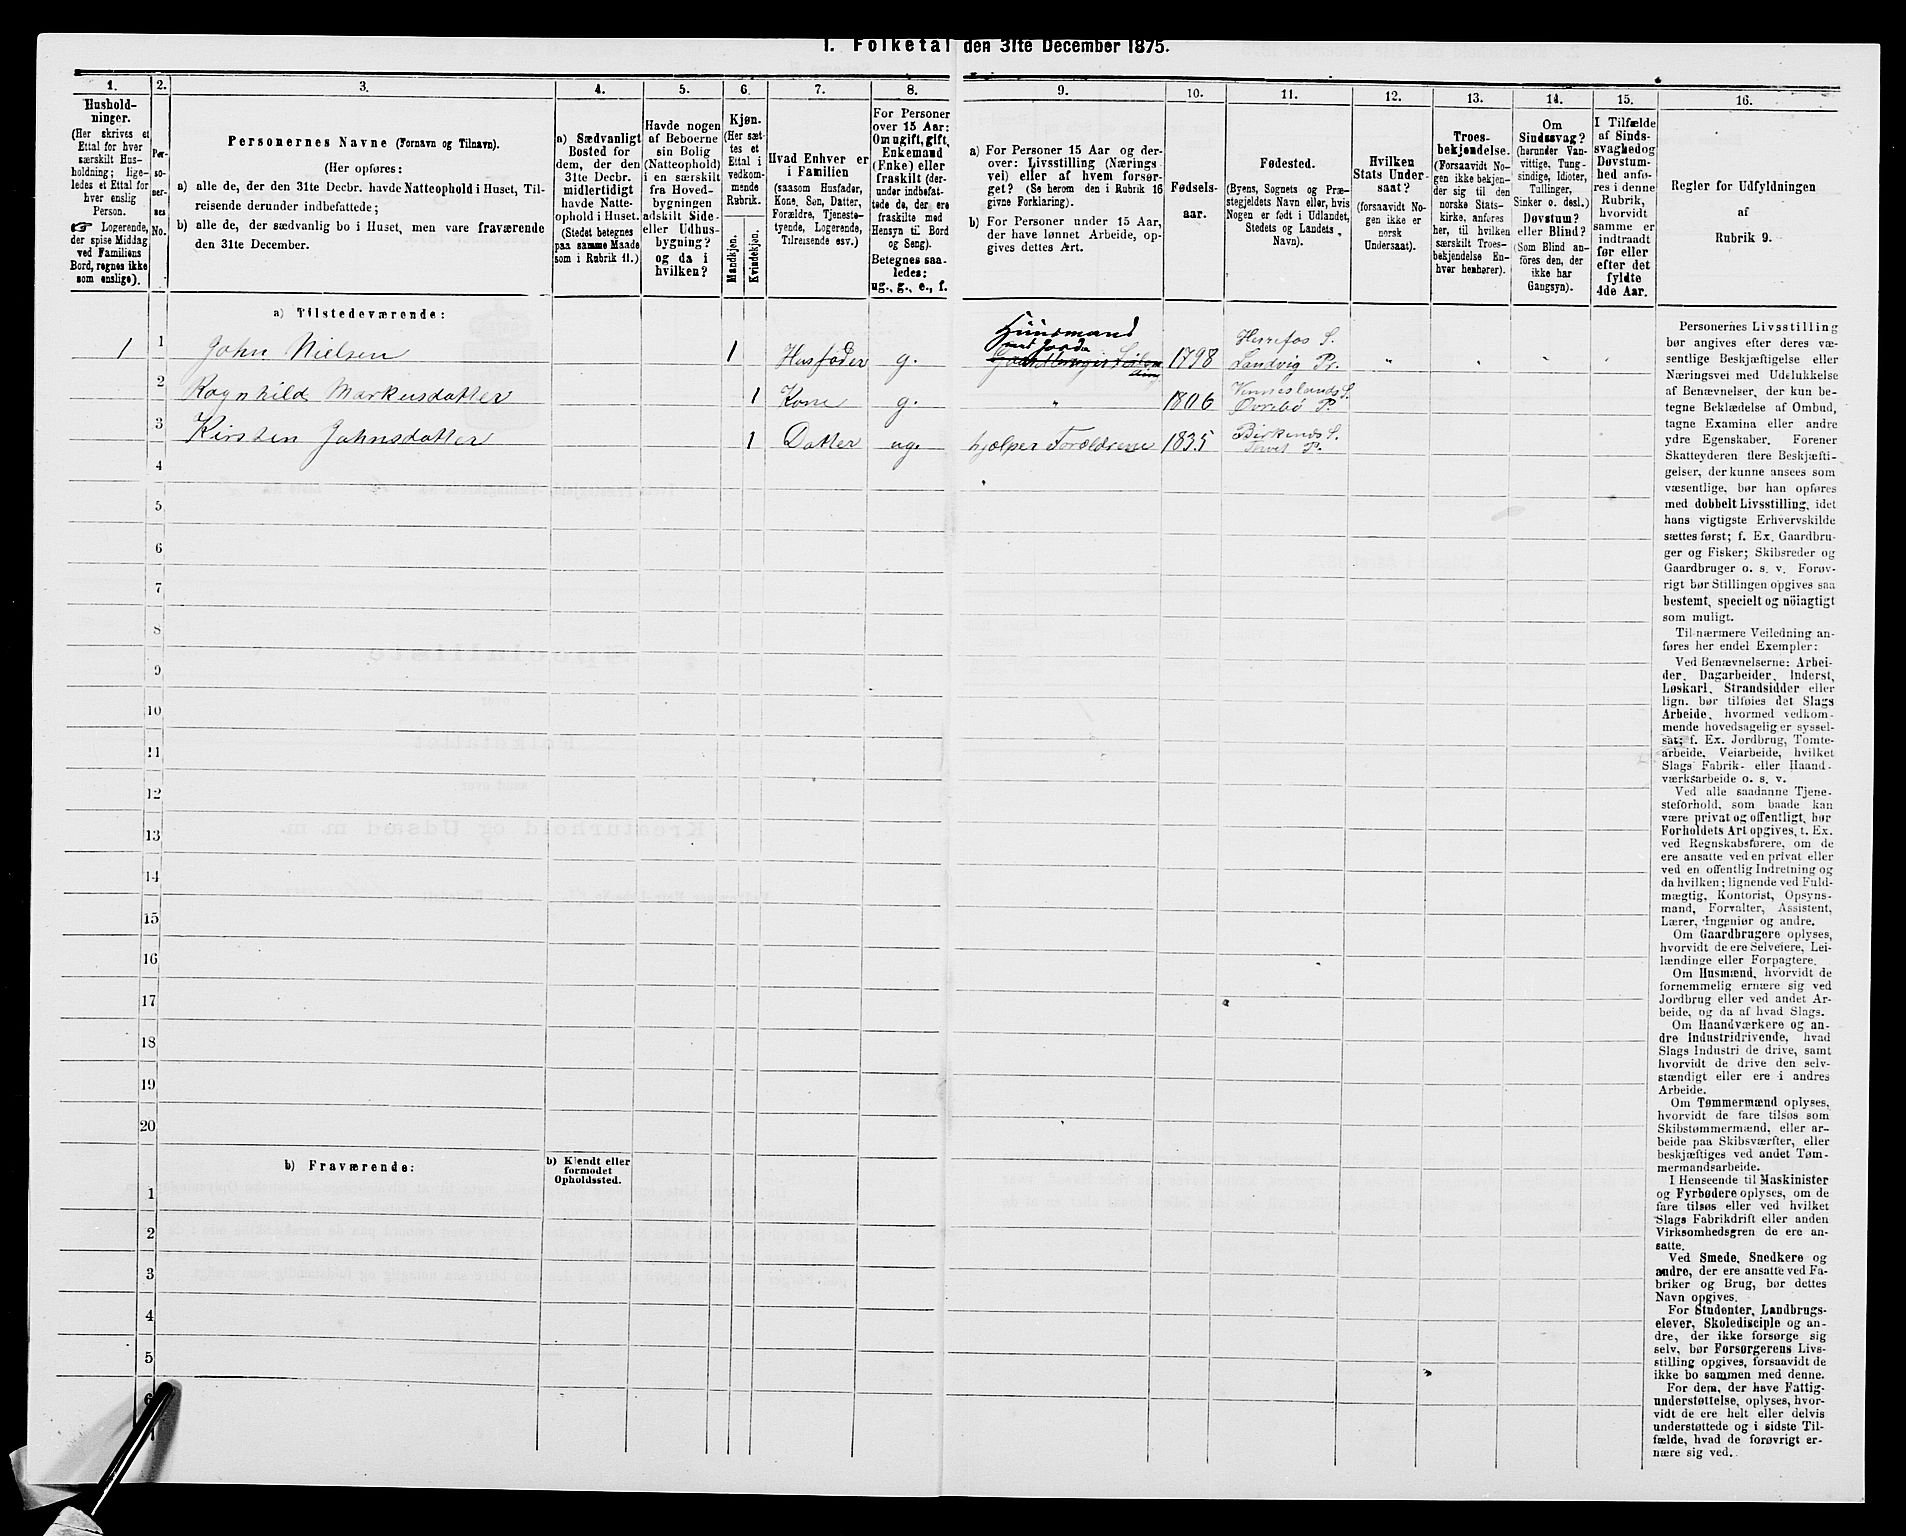 1. Folketal den 31te December 1875.
1. 2. 3. 4. 5. 6. 7. 8. 9. 10. 11. 12. 13. 14. 15. 16.
Hushold-
ninger.
(Her skrives et
Ettal for hver
særskilt Hus-
holdning; lige-
ledes et Ettal for
hver enslig
Person.
☞ Logerende,
der spise Middag
ved Familiens
Bord, regnes ikke
som enslige).
Per-
so-
ner-
nes
No.
Personernes Navne (Fornavn og Tilnavn).
(Her opføres:
a) alle de, der den 31te Decbr. havde Natteophold i Huset, Til-
reisende derunder indbefattede;
b) alle de, der sædvanlig bo i Huset, men vare fraværende
den 31te December.
a) Sædvanligt
Bosted for
dem, der den
31te Decbr.
midlertidigt
havde Natte-
ophold i Huset.
(Stedet betegnes
paa samme Maade
som i Rubrik 11.)
Havde nogen
af Beboerne
sin Bolig
(Natteophold)
i en særskilt
fra Hoved-
bygningen
adskilt Side-
eller Udhus-
bygning?
og da i
hvilken?
Kjøn.
(Her sæt-
tes et
Ettal i
vedkom-
mende
Rubrik.
Mandkjøn.
Kvindekjøn.
Hvad Enhver er
i Familien
(saasom Husfader,
Kone, Søn, Datter,
Forældre, Tjeneste-
tyende, Logerende,
Tilreisende osv.)
For Personer
over 15 Aar:
Om ugift, gift,
Enkemand
(Enke) eller
fraskilt (der-
under indbefat-
tede de, der ere
fraskilte med
Hensyn til Bord
og Seng).
Betegnes saa-
ledes:
ug., g., e., f.
a) For Personer 15 Aar og der-
over: Livsstilling (Nærings
vei) eller af hvem forsør-
get? (Se herom den i Rubrik 16
givne Forklaring).
b) For Personer under 15 Aar,
der have lønnet Arbeide, op-
gives dettes Art.
Fødsels-
aar.
Fødested.
(Byens, Sognets og Præ-
stegjeldets Navn eller, hvis
Nogen er født i Udlandet,
Stedets og Landets
Navn).
Hvilken
Stats Under-
saat?
(forsaavidt No-
gen ikke er
norsk
Undersaat).
Troes-
bekjendelse.
(Forsaavidt No-
gen ikke bekjen-
der sig til den
norske Stats-
kirke, anføres
her, til hvilken
særskilt Troes-
bekjendelse En-
hver henhører).
Om
Sindssvag?
(herunder Van-
vittige, Tung-
sindige, Idioter,
Tullinger,
Sinker o. desl.)
Døvstum?
eller Blind?
(Som Blind an-
føres den, der
ikke har
Gangsyn).
I Tilfælde
af Sinds-
svaghed og
Døvstum-
hed anfø-
res i denne
Rubrik,
hvorvidt
samme er
indtraadt
før eller
efter det
fyldte
4de Aar.
Regler for Udfyldningen
af
Rubrik 9.
a) Tilstedeværende:
Huusmand
med Jord
1 1 John Nielsen 1 Husfader g. 1798 Herrefos S.
Landvig Pr. " " " "
2 Ragnhild Markusdatter 1 Kone g. " 1806 Venneslands S.
Øvrebø P.
3 Kirsten Johnsdatter 1 Datter ug. hjælper Forældrene 1835 Birkends S.
Tveit P.
4
5
6
7
8
9
10
11
12
13
14
15
16
17
18
19
20
b) Fraværende:
b) Kjendt eller
formodet
Opholdssted.
1
2
3
4
5
6
Personernes Livsstilling
bør angives efter deres væ-
sentlige Beskjæftigelse eller
Næringsvei med Udelukkelse
af Benævnelser, der kun be-
tegne Beklædelse af Ombud,
tagne Examina eller andre
ydre Egenskaber. Forener
Skatteyderen flere Beskjæfti-
gelser, der kunne ansees som
væsentlige, bør han opføres
med dobbelt Livsstilling, idet
hans vigtigste Erhvervskilde
sættes først; f. Ex. Gaardbru-
ger og Fisker; Skibsreder og
Gaardbruger o. s. v. Forøv-
rigt bør Stillingen opgives saa
bestemt, specielt og nöiagtigt
som muligt.
Til nærmere Veiledning an-
føres her endel Exempler:
Ved Benævnelserne: Arbei-
der, Dagarbeider, Inderst,
Løskarl, Strandsidder eller
lign. bør tilføies det Slags
Arbeide, hvormed vedkom-
mende hovedsagelig er syssel-
sat; f. Ex. Jordbrug, Tomte-
arbeide, Veiarbeide, hvilket
Slags Fabrik- eller Haand-
værksarbeide o. s. v.
Ved alle saadanne Tjene-
steforhold, som baade kan
være privat og offentligt, bør
Forholdets Art opgives, t. Ex.
ved Regnskabsførere, om de
ere ansatte ved en privat eller
ved en offentlig Indretning og
da hvilken; lignende ved Fuld-
mægtig, Kontorist, Opsyns-
mand, Forvalter, Assistent,
Lærer, Ingeniør og andre.
Om Gaardbrugere oplyses,
hvorvidt de ere Selveiere, Lei-
lændinge eller Forpagtere.
Om Husmænd, hvorvidt de
fornemmelig ernære sig ved
Jordbrug eller ved andet Ar-
beide, og da af hvad Slags.
Om Haandværkere og an-
dre Industridrivende, hvad
Slags Industri de drive, samt
hvorvidt de drive den selv-
stændigt eller ere i andres
Arbeide.
Om Tømmermænd oplyses,
hvorvidt de fare tilsøs som
Skibstømmermænd, eller ar-
beide paa Skibsværfter, eller
beskjæftiges ved andet Tøm-
mermandsarbeide.
I Henseende til Maskinister
og Fyrbødere oplyses, om de
fare tilsøs eller ved hvilket
Slags Fabrikdrift eller anden
Virksomhedsgren de ere an-
satte.
Ved Smede, Snedkere og
andre, der ere ansatte ved Fa-
briker og Brug, bør dettes
Navn opgives.
For Studenter, Landbrugs-
elever, Skoledisciple og an-
dre, der ikke forsørge sig
selv, bør Forsørgerens Livs-
stilling opgives, forsaavidt de
ikke bo sammen med denne.
For dem, der have Fattig-
understøttelse, oplyses, hvor-
vidt de ere helt eller delvis
understøttede og i sidste Til-
fælde, hvad de forøvrigt er-
nære sig ved.